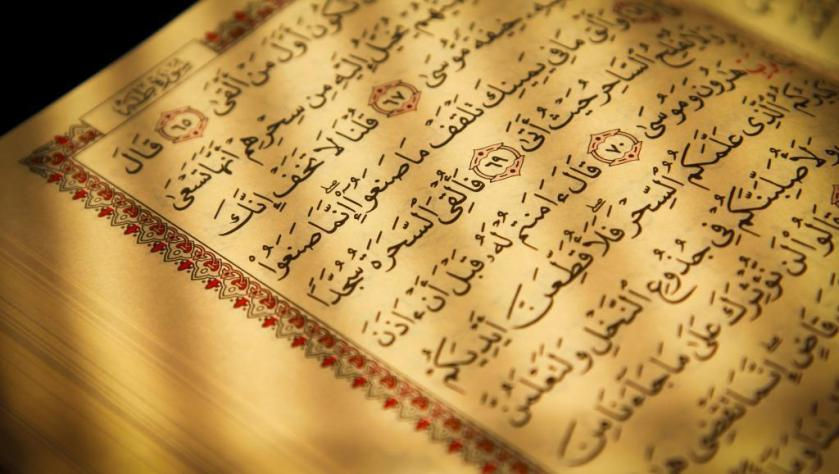 سُورَةُ طه
نَكُونَ أَوَّلَ مَنْ أَلْقَىٰ ٦٥ قَالَ
يُخَيَّلُ إِلَيْهِ مِن سِحْرِهِمْ أَنَّهَا تَسْعَىٰ
خِيفَةً مُوسَىٰ ٦٧ قُلْنَا لَا تَخَفْ إِنَّكَ
وَأَلْقِ مَا فِي يَمِينِكَ تَلْقَفْ مَا صَنَعُوا إِنَّمَا صَنَعُوا
السَّاحِرُ حَيْثُ أَتَىٰ ٦٩ فَأُلْقِيَ السَّحَرَةُ سُجَّدًا
هَرُونَ وَمُوسَىٰ ٧٠ قَالَ ءَامَنتُمْ لَهُ قَبْلَ أَنْ ءَاذَنَ
الَّذِي عَلَّمَكُمُ السِّحْرَ فَلَأُقَطِّعَنَّ أَيْدِيَكُمْ
وَلَأُصَلِّبَنَّكُمْ فِي جُذُوعِ النَّخْلِ وَلَتَعْلَمُنَّ
قَالُوا لَن نُّؤْثِرَكَ عَلَىٰ مَا جَاءَنَا مِنَ
قَاضٍ إِنَّمَا تَقْضِي